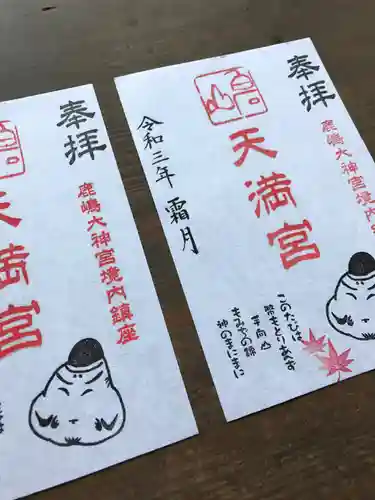 奉拝
鹿嶋大神宮境内
天満宮
令和三年 霜月
このたびは
幣もとりあへず
手向山
もみぢの錦
神のまにまに
奉拝
鹿嶋大神宮境内鎮座
天満宮